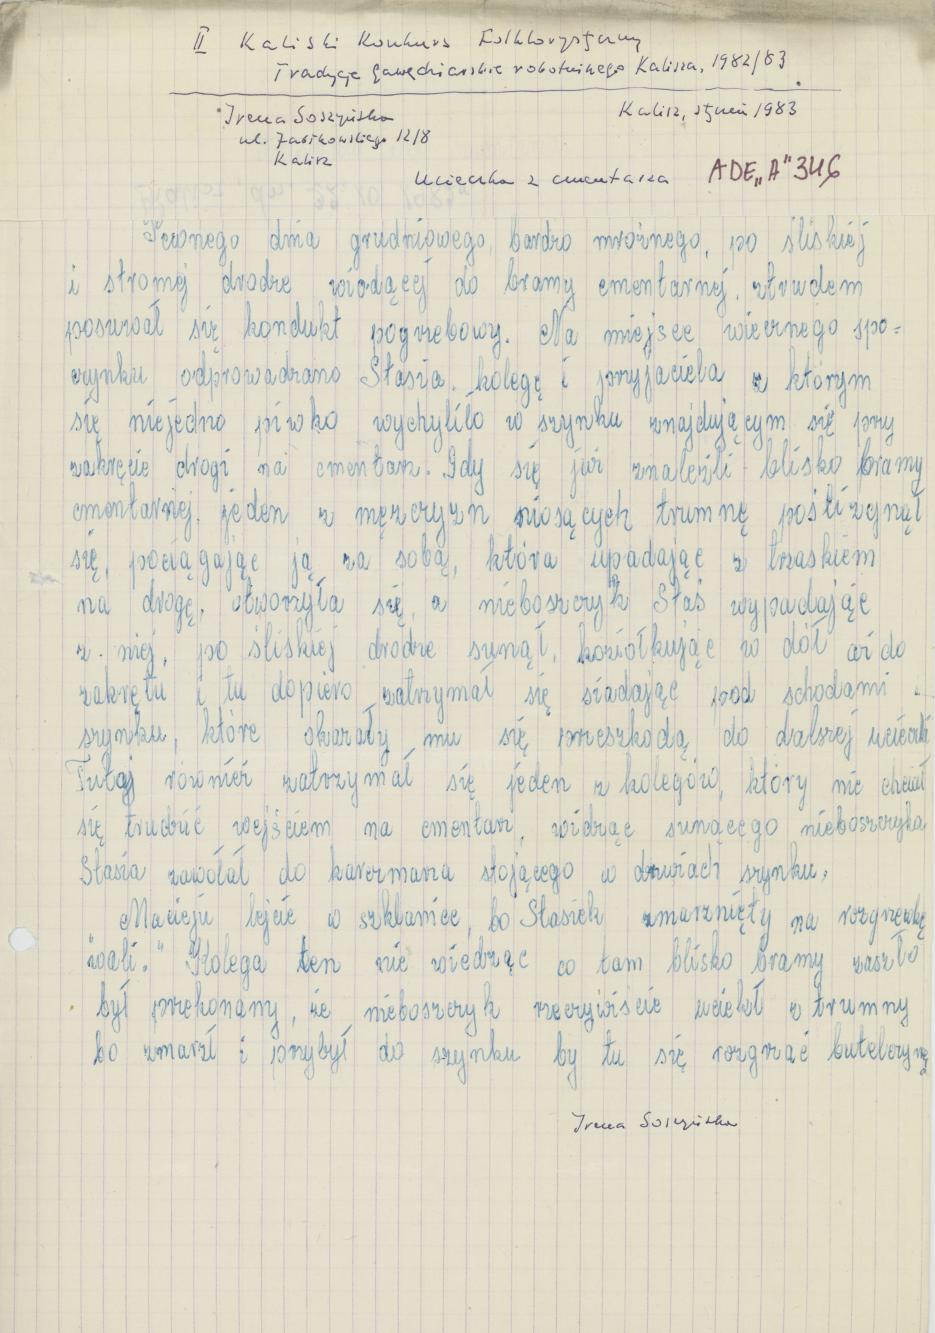 II Kaliski Konkurs Folklorystyczny
Tradycje gawędziarskie robotniczego Kalisza, 1982/83
Irena Soszyńska
Kalisz, styczeń 1983
ul. 12/8
Kalisz
Ucieczka z cmentarza
ADE„A" 346
Pewnego dnia grudniowego, bardzo mroźnego, po śliskiej
i stromej drodze wiodącej do bramy cmentarnej, ztrudem
posuwał się kondukt pogrzebowy. Na miejsce wiecznego spo=
czynku odprowadzano Stasia, kolegę i przyjaciela z którym
się niejedno piwko wychyliło w szynku znajdującym się przy
zakręcie drogi na cmentarz. Gdy się już znaleźli blisko bramy
cmentarnej, jeden z mężczyzn niosących trumnę pośliznął
się, pociągając ją za sobą, która upadając z trzaskiem
na drogę, otworzyła się, a nieboszczyk Staś wypadając
z niej, po śliskiej drodze sunął, koziołkując w dół aż do
zakrętu i tu dopiero zatrzymał się siadając pod schodami
szynku, które okazały mu się przeszkodą do dalszej ucieczki
Tutaj również zatrzymał się jeden z kolegów, który nie chciał
się trudzić wejściem na cmentarz, widząc sunącego nieboszczyka
Stasia zawołał do karczmarza stojącego w drzwiach szynku,
Macieju lejcie w szklanice, bo Stasiek zmarznięty na rozgrzewkę
"wali." Kolega ten nie wiedząc co tam blisko bramy zaszło
był przekonany, że nieboszczyk rzeczywiście uciekł z trumny
bo zmarzł i przybył do szynku by tu się rozgrzać buteleczyną
Irena Soszyńska